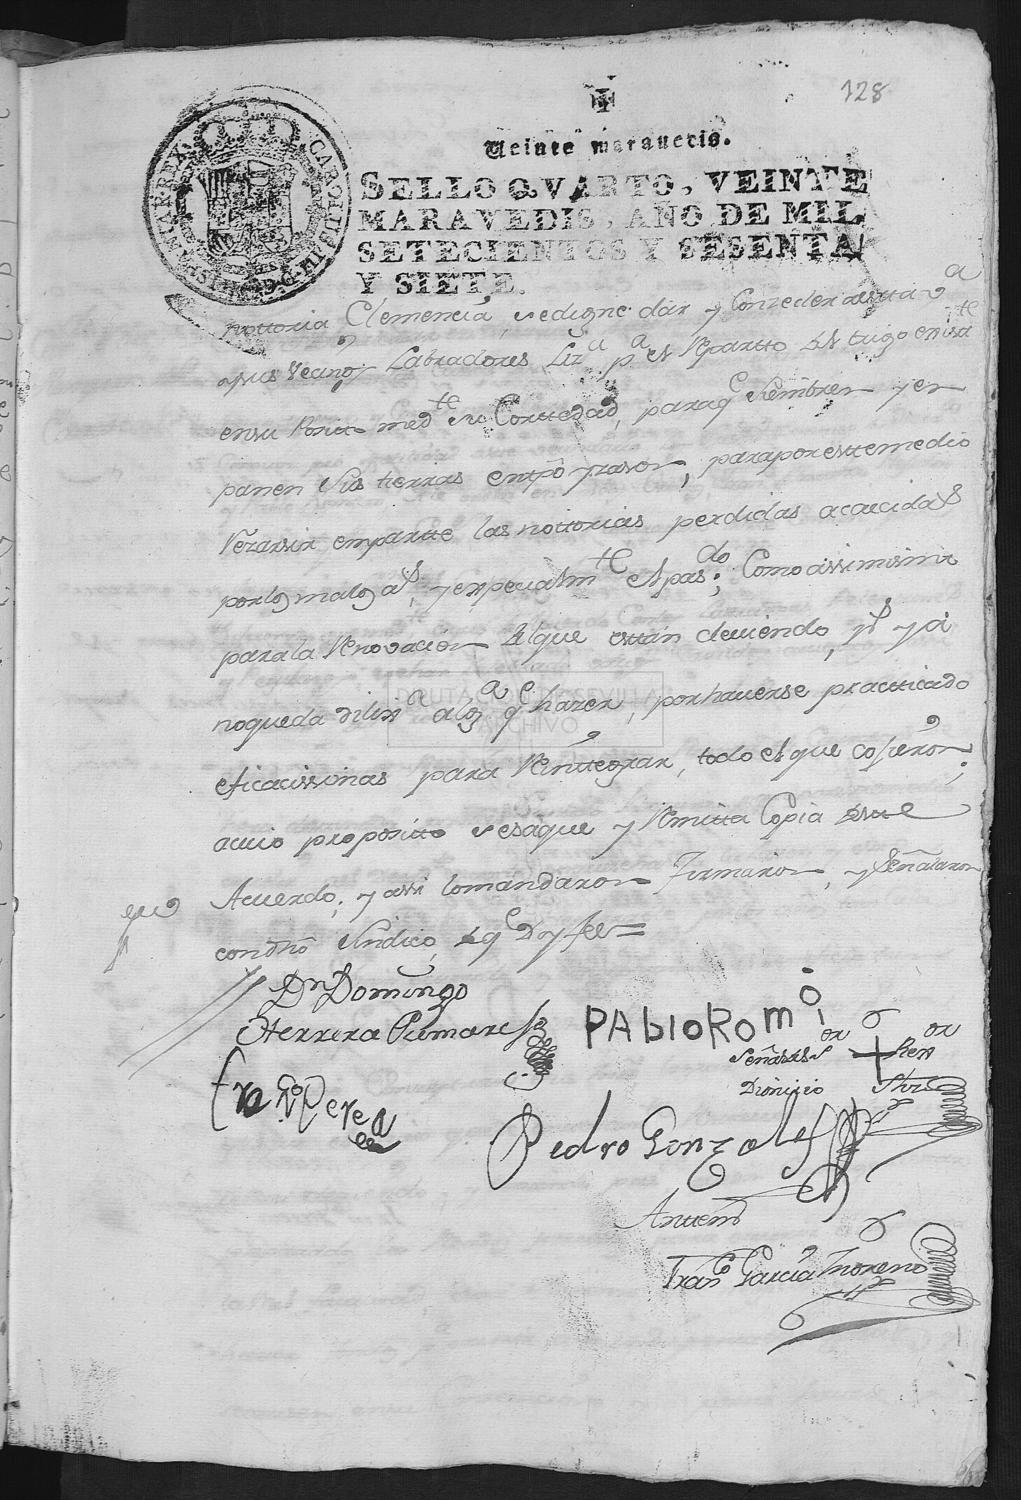 128
Veinte maravedis.
SELLO QVARTO, VEINTE
MARAVEDIS, AÑO DE MIL
SETECIENTOS Y SESENTA
Y SIETE.
CAROLUS III D G HISPANIAR REX
nottoria Clemencia, se digne dar y Conzeder a esta va
y sus Vecanos Labradores Liza pa el Repartto del trigo existte
en su Posito medte su Corttedad, para qe Siembren y en
panen Sus tierras en tpo y razon, para por este medio
Rezarsir en partte las nottorias perdidas acaecidas
por los malos as, y expecialmte el pasdo; Como assimismo
para la Renovacion del que estan deviendo, y ya
no queda dilixa alga qe hazer, por haverse practticado
eficacissimas para Reinttegrar, todo el que cojieron;
a cuio proposito se saque y Remitta Copia deste
Acuerdo; y assi lo mandaron Firmaron, y Señalaron
con dho Sindico, de qe Doy fee =
Dn Domingo
Herrera Pumares
PAbloRomo
Señas
Dionisio
Franco Perea
Pedro Gonzales
Antemi
Franco Garcia Moreno
DIPUTACION DE SEVILLA
ARCHIVO